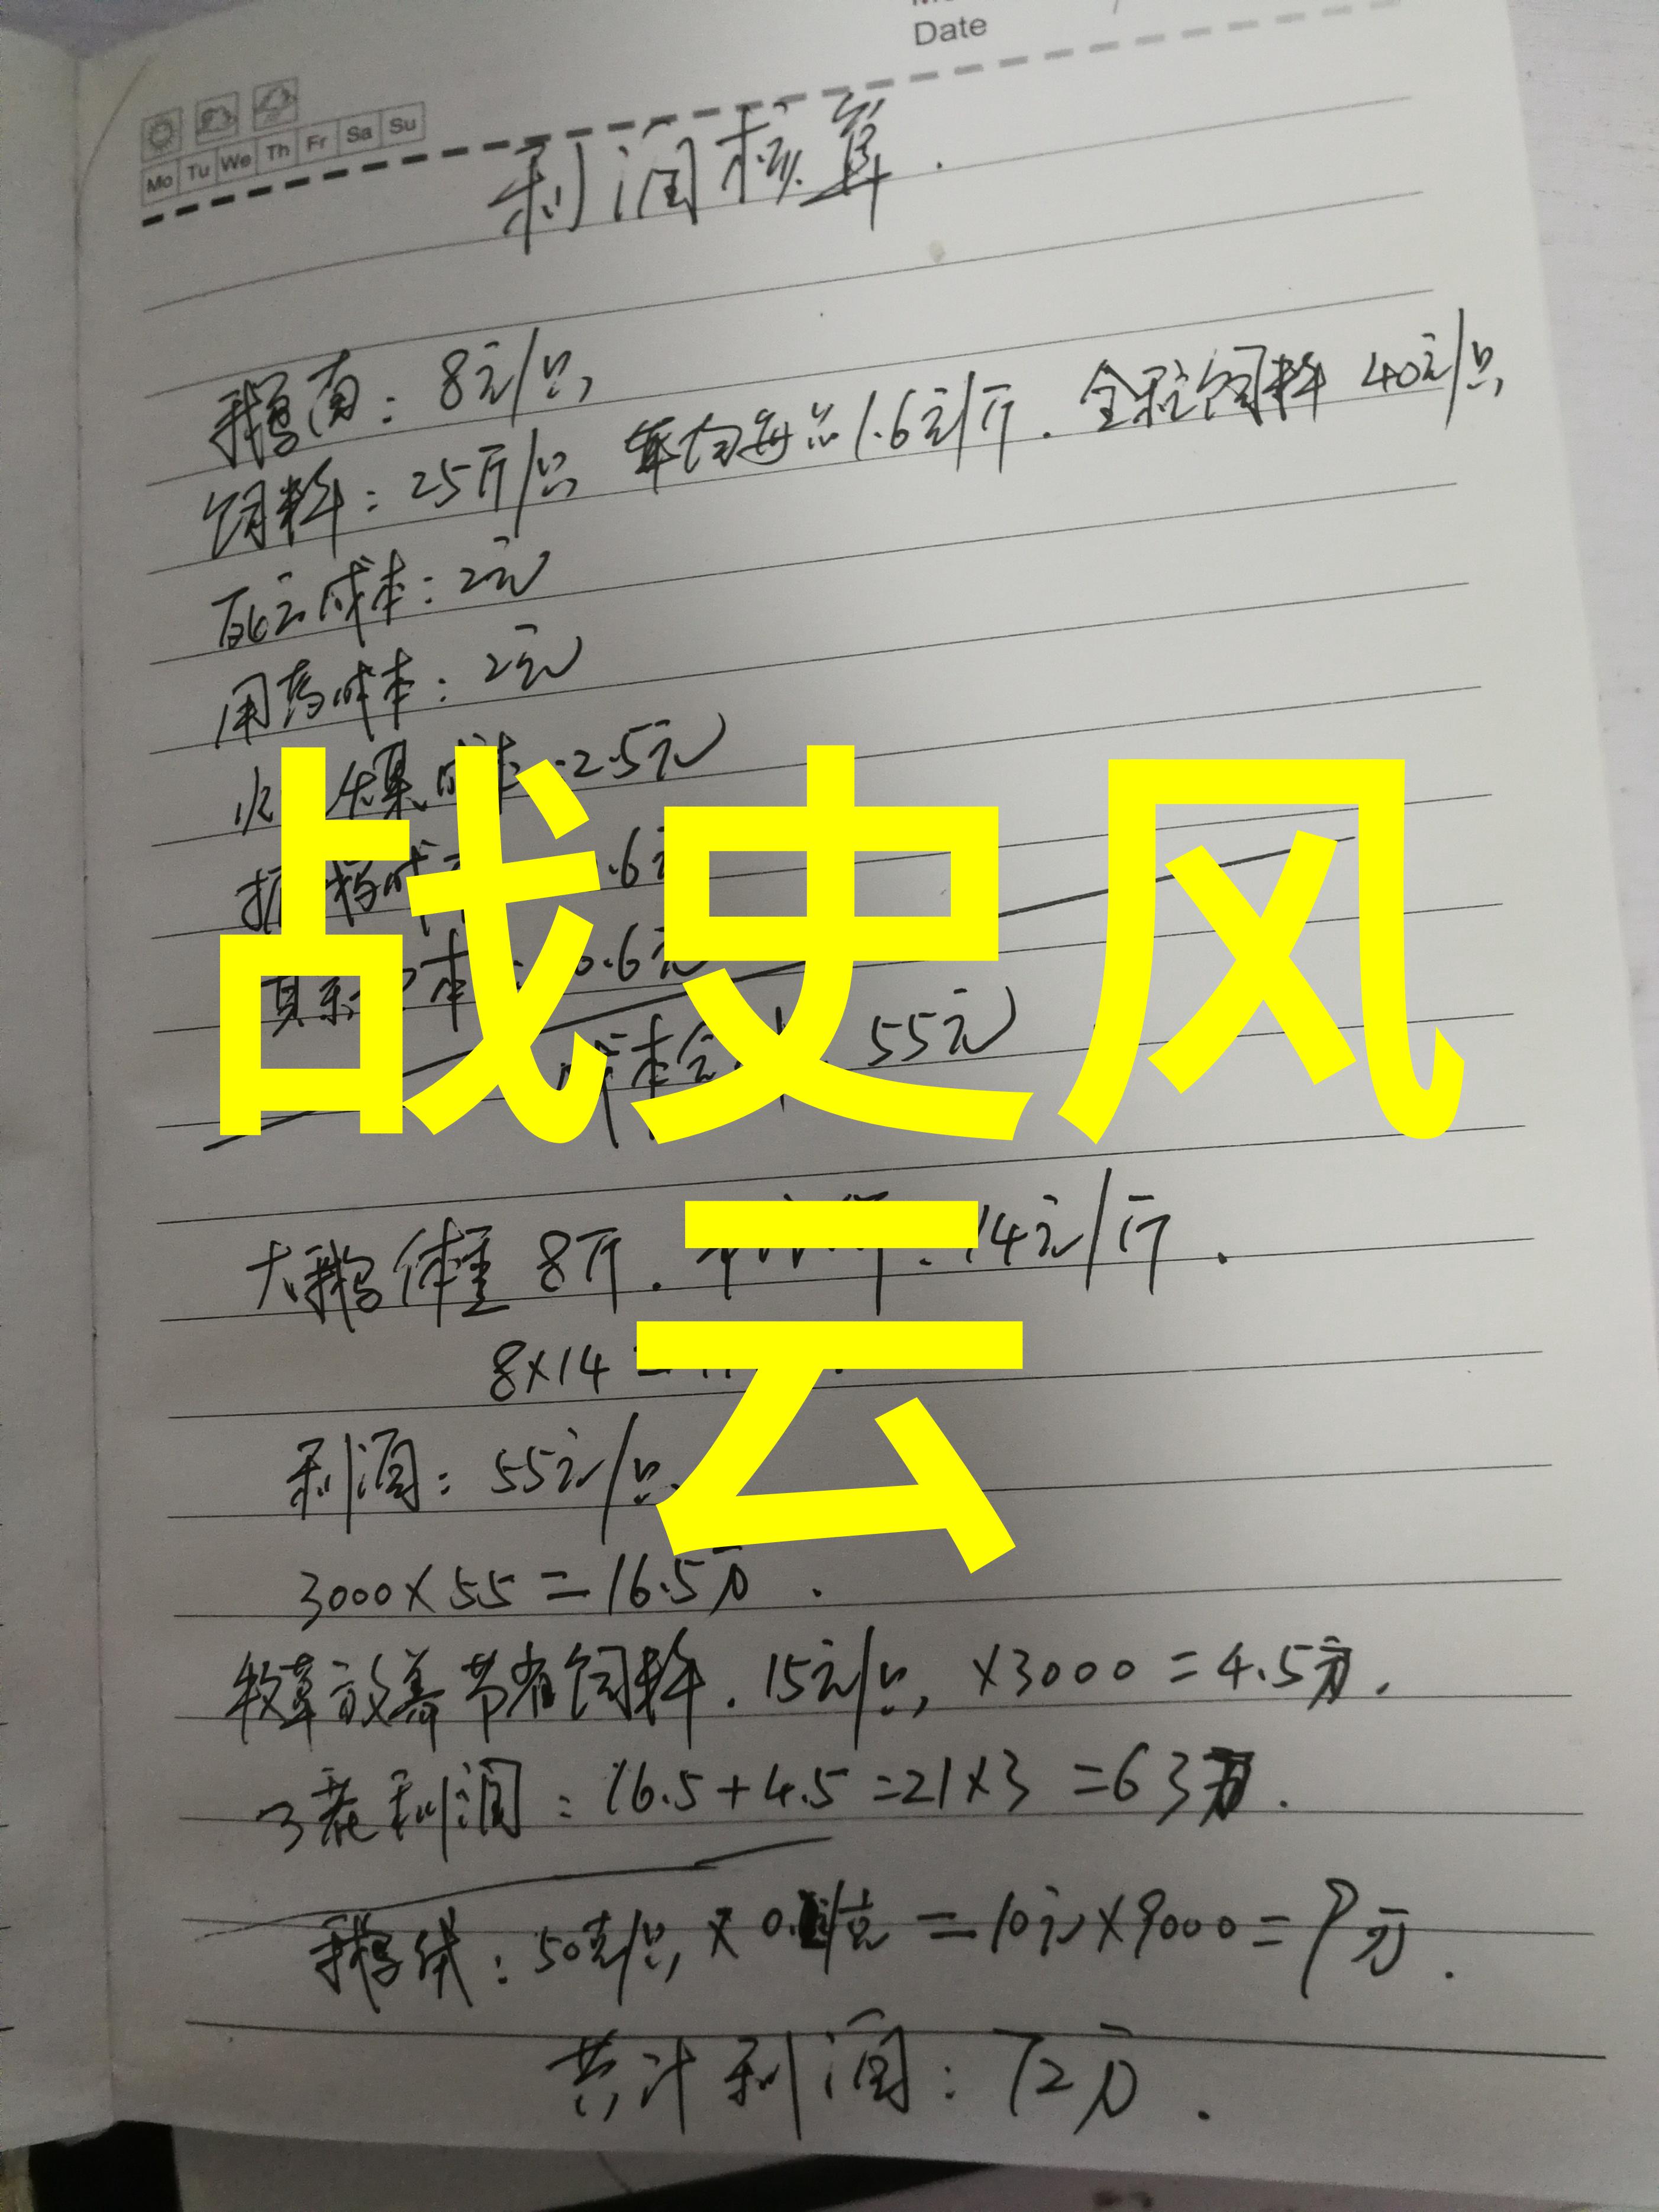 Date
Mo Tu We Th Fr Sa Su
利润核算.
鹅苗：8元/只,
饲料：25斤/只, 每只1.6元/斤. 全程饲料 40元/只,
死亡成本：2元
用药成本：2元
2.5元
.6元
其 0.6元
战史风
云
成本合 55元
大鹅体重 8斤. 14元/斤.
8×14 =
利润：55元/只.
3000×55=16.5万.
牧草放养节省饲料. 15元/只, ×3000=4.5万.
3茬利润：16.5+4.5=21×3=63万.
鹅绒：50克/只, × 0. /克 = 10元×9000=9万.
共计利润：72万.